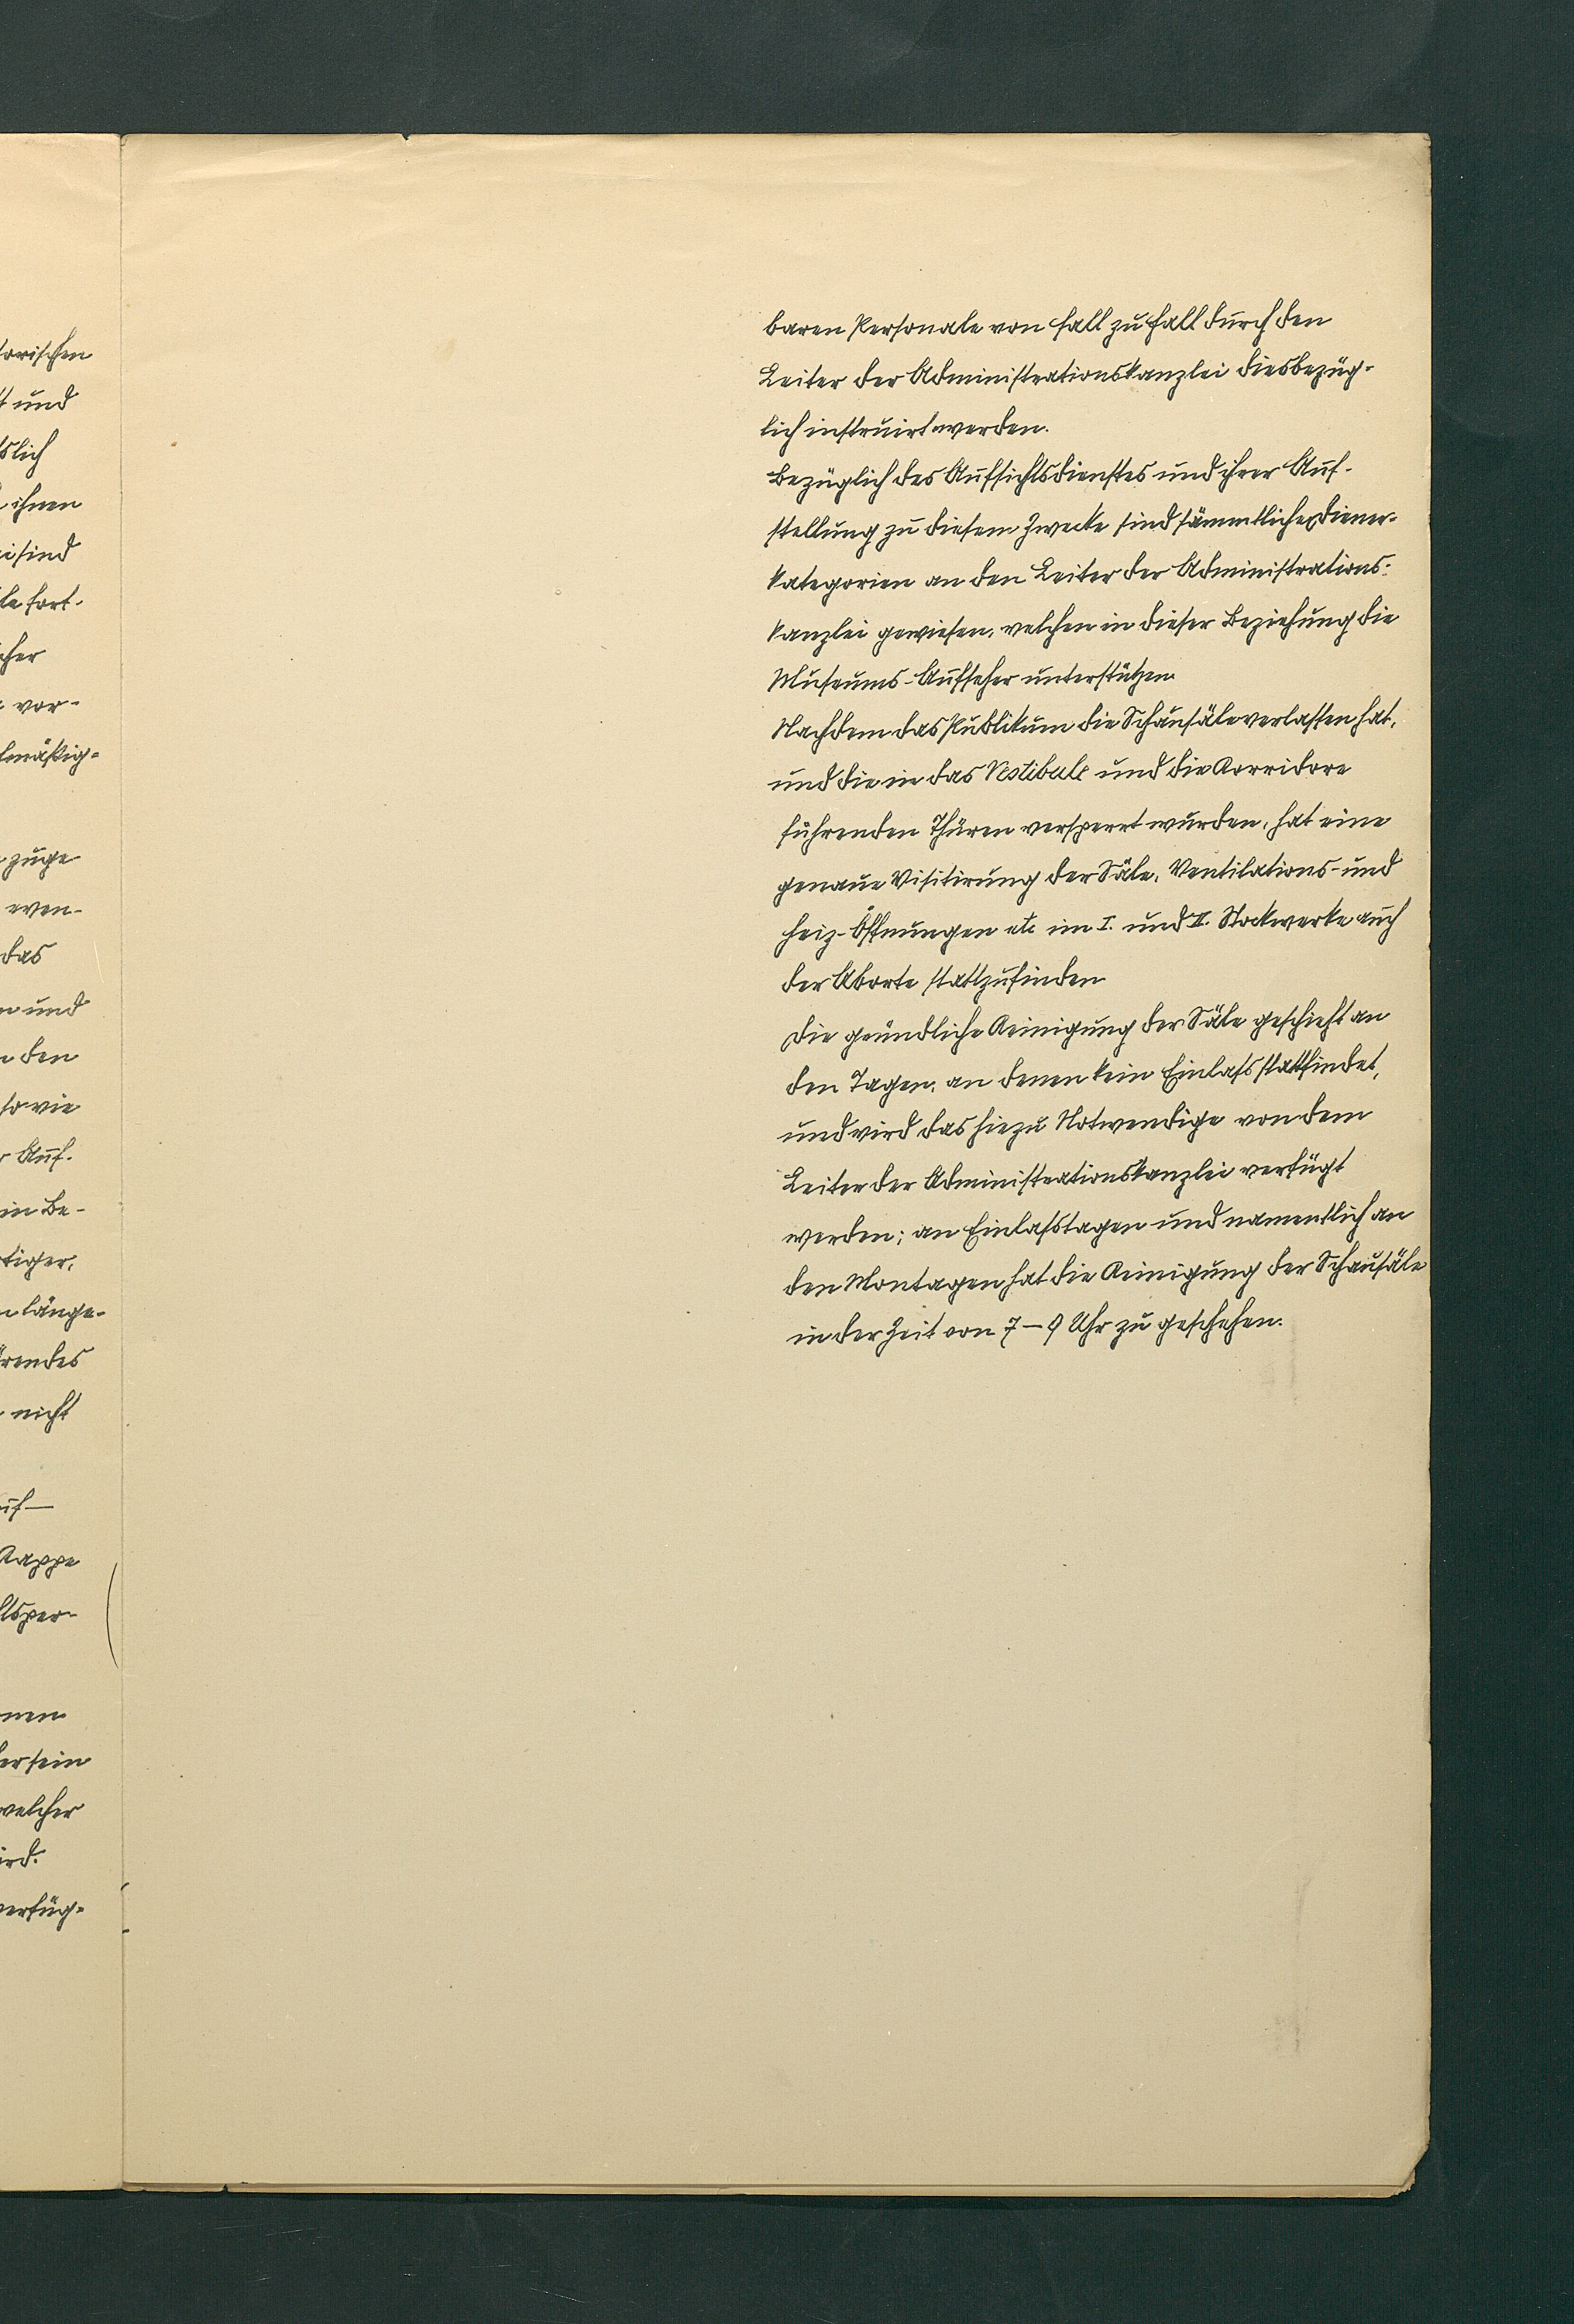 torischen
t und
tslich
ihnen
i sind
le fort-
cher
vor-
lmäßig-
zuge
even-
das
n und
n den
sowie
r Auf-
in Be-
tiger,
n länge-
rendes
nicht
uf—
Kappe
tsper-
nen
er sein
welcher
ird.
verfüg-
baren Personale von Fall zu Fall durch den
Leiter der Administrationskanzlei diesbezüg-
lich instruirt werden.
Bezüglich des Aufsichtsdienstes und ihrer Auf-
stellung zu diesem Zwecke sind sämmtliche Diener-
kategorien an den Leiter der Administrations-
kanzlei gewiesen, welchen in dieser Beziehung die
Museums-Aufseher unterstützen.
Nachdem das Publikum die Schausäle verlassen hat,
und die in das Vestibule und die Korridore
führenden Thüren versperrt wurden, hat eine
genaue Visitirung der Säle, Ventilations- und
Heiz-Öffnungen etc im I. und II. Stockwerke auch
der Aborte stattzufinden
Die gründliche Reinigung der Säle geschieht an
den Tagen, an denen kein Einlass stattfindet,
und wird das hiezu Notwendige von dem
Leiter der Administrationskanzlei verfügt
werden; an Einlasstagen und namentlich an
den Montagen hat die Reinigung der Schausäle
in der Zeit von 7–9 Uhr zu geschehen.